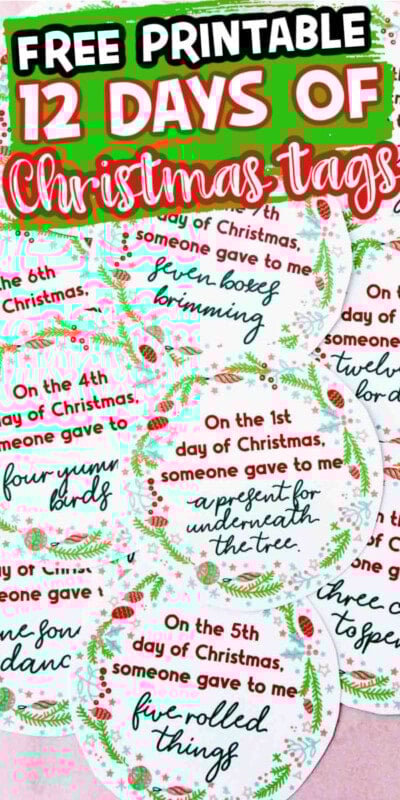 FREE PRINTABLE
12 DAYS OF
Christmas tags
7th
day of Christmas,
someone gave to me
seven boxes
brimming
the 6th
Christmas,
On
day of
someone
twelve
On the 4th
day of Christmas,
someone gave to
four
birds
On the 1st
day of Christmas,
someone gave to me
a present for
underneath
the tree.
of
gave
three
to
On the 5th
day of Christmas,
someone gave to me
five rolled
things